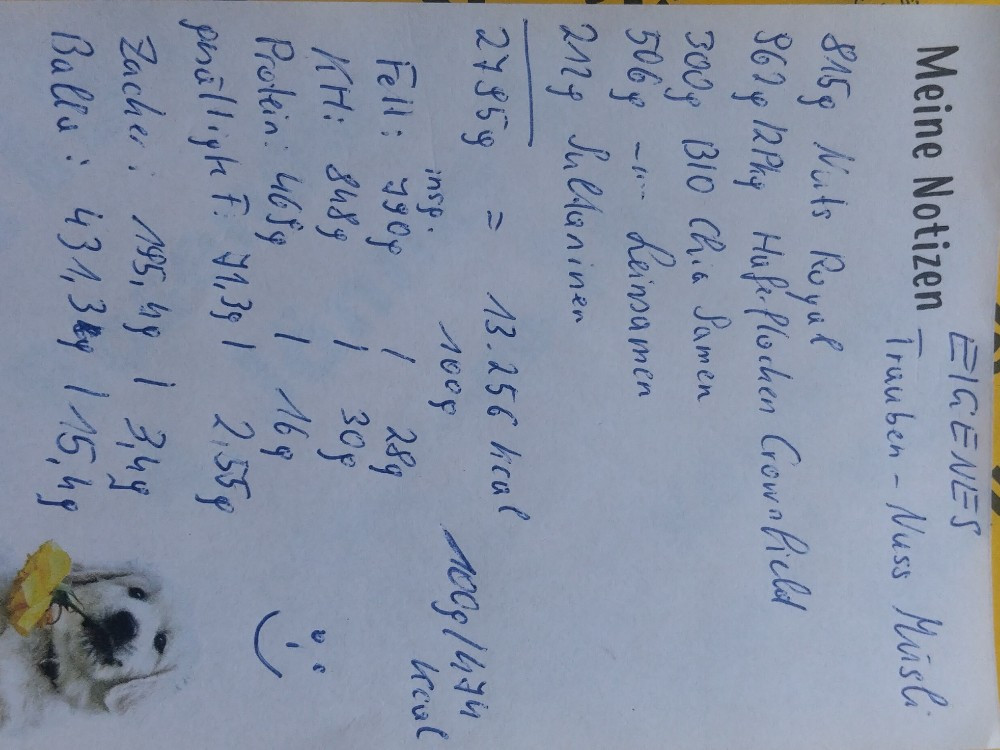 EIGENES
Meine Notizen Trauben - Nuss Müsli
815g Nuts Royal
962g Haferflocken Crownfield
300g BIO Chia Samen
506g -"- Leinsamen
212g Sultaninen
2795g = 13.256 kcal 100g/474 kcal
insg. 100g
Fett: 790g | 28g
KH: 848g | 30g
Protein: 468g | 16g
gesättigte F: 71,3g | 2,55g
Zucker: 195,4g | 3,4g
Balla: 431,3g | 15,4g